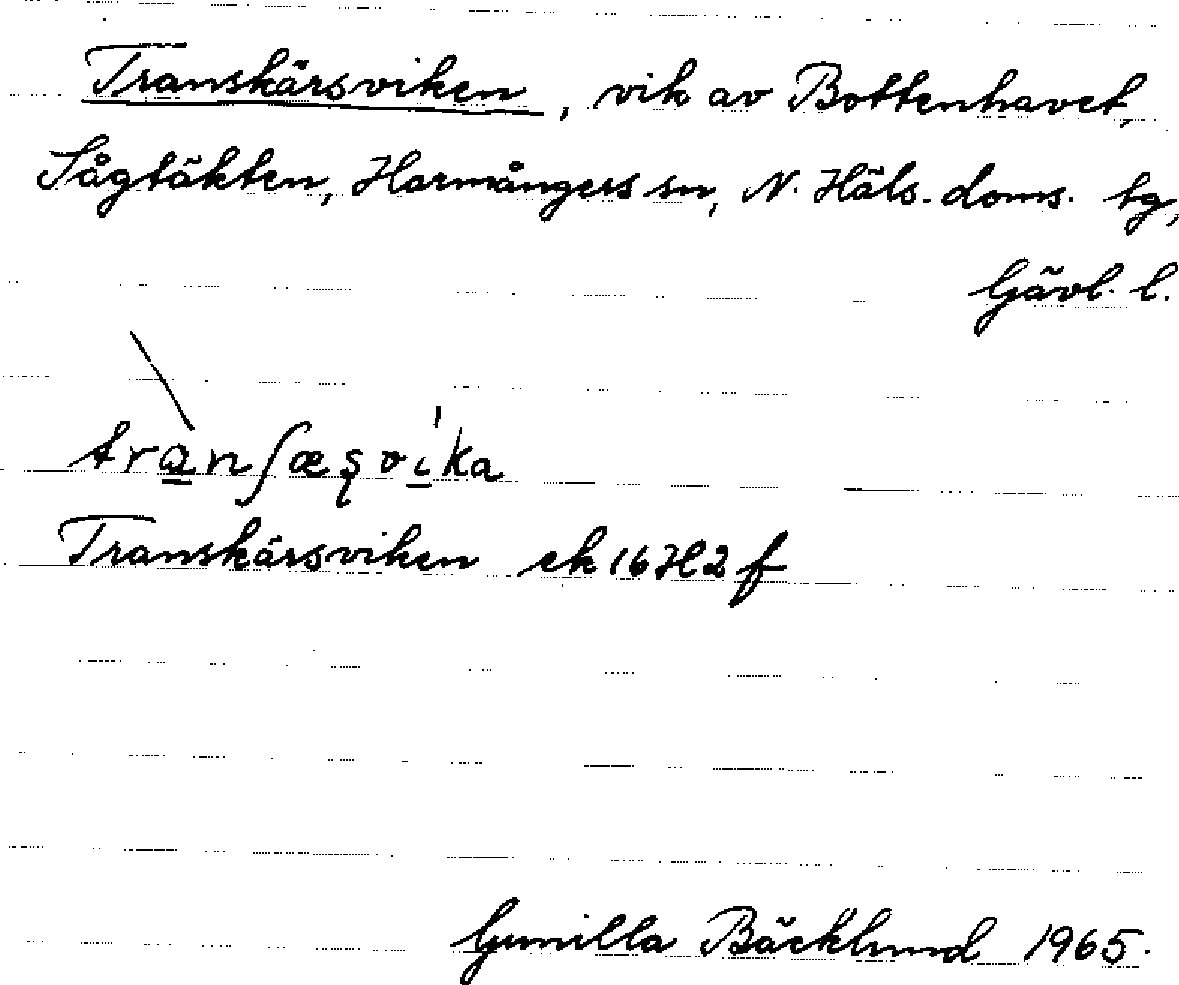 Transkärsviken, vik av Bottenhavet,
Sågtäkten, Harmångers sn, N. Häls. doms. tg,
Gävl. l.
tranʃæʂvíka
Transkärsviken ek 16H2f
Gunilla Bäcklund 1965.